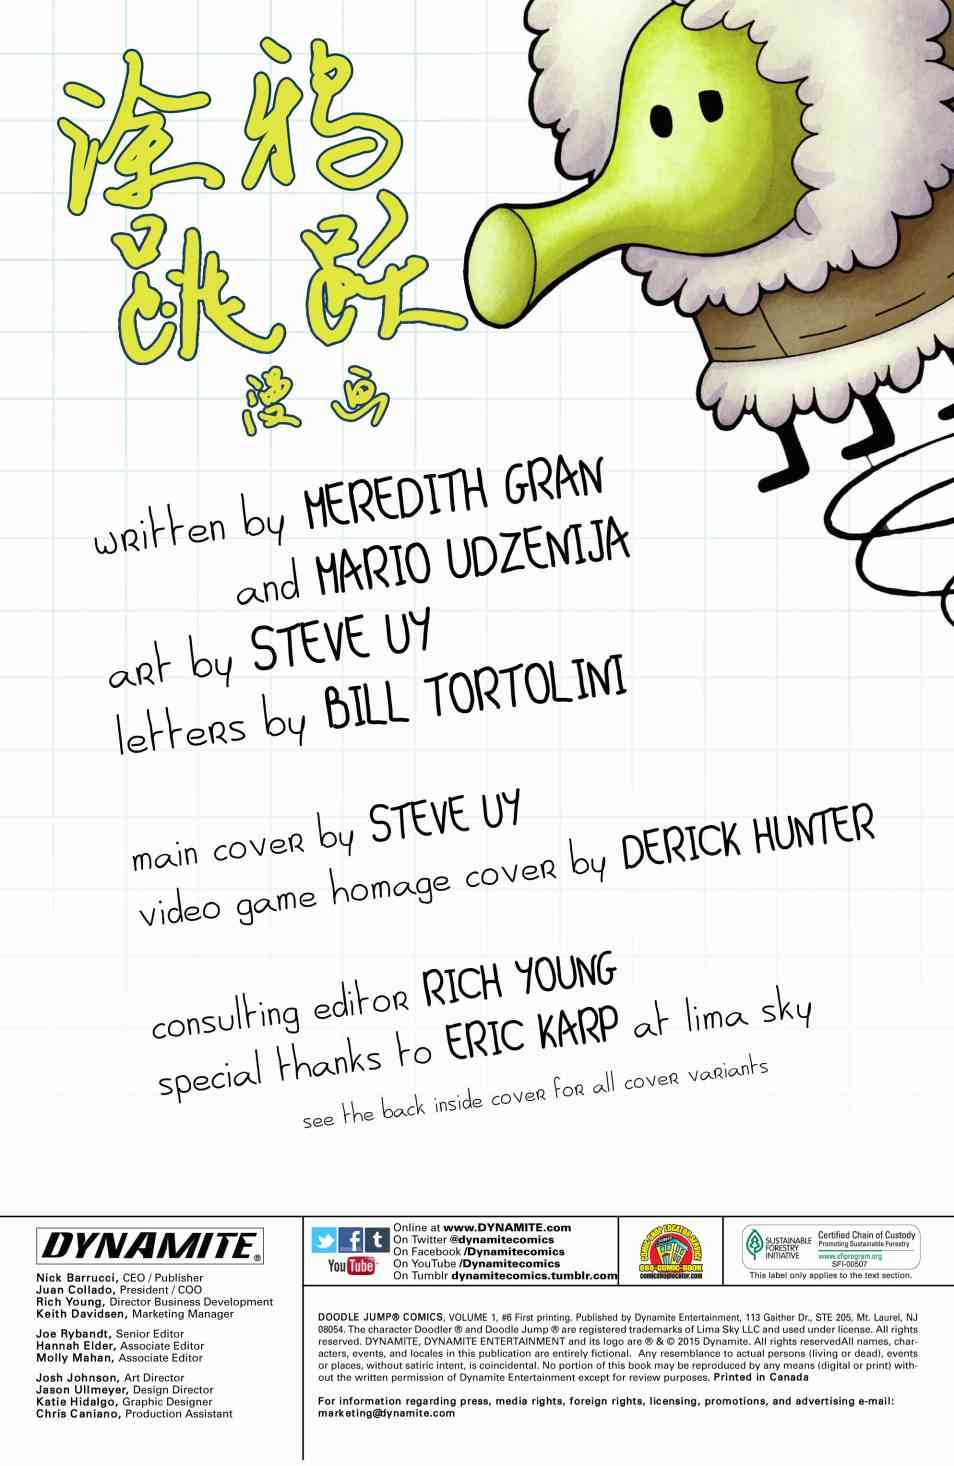 涂鸦
跳跃
漫画
written by MEREDITH GRAN
and MARIO UDZENIJA
art by STEVE UY
letters by BILL TORTOLINI
main cover by STEVE UY
video game homage cover by DERICK HUNTER
consulting editor RICH YOUNG
special thanks to ERIC KARP at lima sky
see the back inside cover for all cover variants
DYNAMITE®
Nick Barrucci, CEO / Publisher
Juan Collado, President / COO
Rich Young, Director Business Development
Keith Davidsen, Marketing Manager
Joe Rybandt, Senior Editor
Hannah Elder, Associate Editor
Molly Mahan, Associate Editor
Josh Johnson, Art Director
Jason Ullmeyer, Design Director
Katie Hidalgo, Graphic Designer
Chris Caniano, Production Assistant
YouTube
Online at www.DYNAMITE.com
On Twitter @dynamitecomics
On Facebook /Dynamitecomics
On YouTube /Dynamitecomics
On Tumblr dynamitecomics.tumblr.com
COMIC SHOP LOCATOR SERVICE
888-COMIC-BOOK
comicshoplocator.com
SUSTAINABLE
FORESTRY
INITIATIVE
Certified Chain of Custody
Promoting Sustainable Forestry
www.sfiprogram.org
SFI-00507
This label only applies to the text section.
DOODLE JUMP® COMICS, VOLUME 1, #6 First printing. Published by Dynamite Entertainment, 113 Gaither Dr., STE 205, Mt. Laurel, NJ
08054. The character Doodler ® and Doodle Jump ® are registered trademarks of Lima Sky LLC and used under license. All rights
reserved. DYNAMITE, DYNAMITE ENTERTAINMENT and its logo are ® & © 2015 Dynamite. All rights reservedAll names, char-
acters, events, and locales in this publication are entirely fictional. Any resemblance to actual persons (living or dead), events
or places, without satiric intent, is coincidental. No portion of this book may be reproduced by any means (digital or print) with-
out the written permission of Dynamite Entertainment except for review purposes. Printed in Canada
For information regarding press, media rights, foreign rights, licensing, promotions, and advertising e-mail:
marketing@dynamite.com